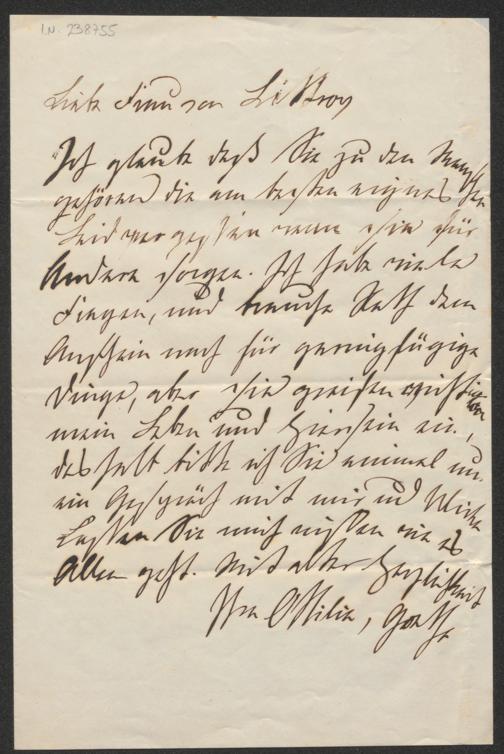 I.N. 238755
Liebe Frau von Littrow
Ich glaube daß Sie zu den Menschen
gehören die am besten eignes
Leid vergessen wenn sie für
Andere sorgen. Ich habe viele
Fragen, und brauche Rath dem
Anschein nach für geringfügige
Dinge, aber sie greifen
mein Leben und Hiersein ein,
deshalb bitte ich Sie einmal um
ein Gespräch mit mir und
Lassen Sie mich wissen wie es
Allen geht. Mit alter Herzlichkeit
Ihre Ottilie, Goethe